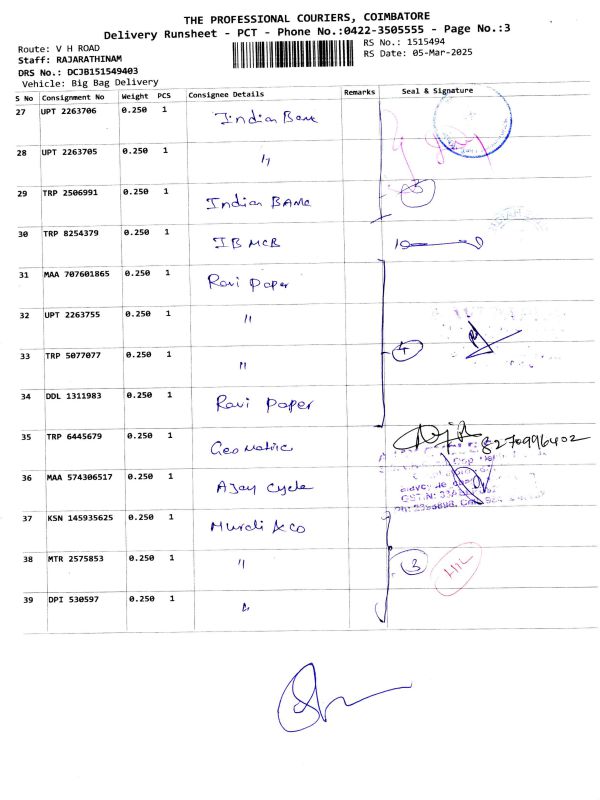 THE PROFESSIONAL COURIERS, COIMBATORE
Delivery Runsheet - PCT - Phone No.:0422-3505555 - Page No.:3
Route: V H ROAD
RS No.: 1515494
Staff: RAJARATHINAM
RS Date: 05-Mar-2025
DRS No.: DCJB151549403
Vehicle: Big Bag Delivery
S No Consignment No Weight PCS Consignee Details Remarks Seal & Signature
27 UPT 2263706 0.250 1 Indian Bank
28 UPT 2263705 0.250 1 "
29 TRP 2506991 0.250 1 Indian BANK
30 TRP 8254379 0.250 1 IB MCB
31 MAA 707601865 0.250 1 Ravi Paper
32 UPT 2263755 0.250 1 "
33 TRP 5077077 0.250 1 " 4
34 DDL 1311983 0.250 1 Ravi Paper
35 TRP 6445679 0.250 1 Geo Matric 8270996402
36 MAA 574306517 0.250 1 AJay Cycle
37 KSN 145935625 0.250 1 Murali & Co
38 MTR 2575853 0.250 1 " 3
39 DPI 530597 0.250 1 "